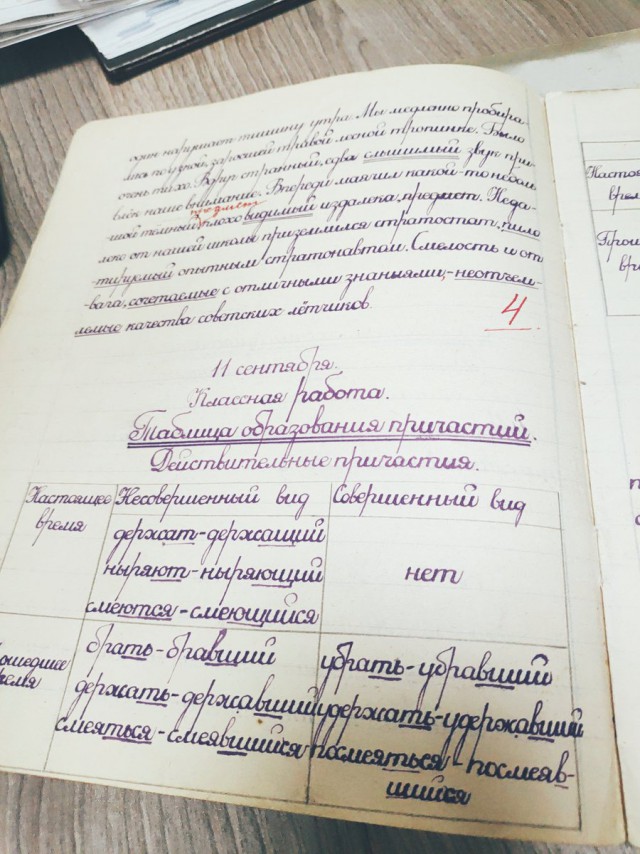 один нарушает тишину утра. Мы медленно пробира-
лись по узкой, заросшей травой лесной тропинке. Было
очень тихо. Вдруг странный, едва слышимый звук при-
влёк наше внимание. Впереди маячил какой-то небольшой
тёмный плохо видимый издалека предмет. Неда-
предмет
леко от нашей школы приземлился стратостат, пило-
тируемый опытным стратонавтом. Смелость и от-
вага, сочетаемые с отличными знаниями, - неотъем-
лемые качества советских лётчиков.
4
11 сентября.
Классная работа.
Таблица образования причастий.
Действительные причастия.
Настоящее время
Несовершенный вид
Совершенный вид
держат - держащий
ныряют - ныряющий
нет
смеются - смеющийся
брать - бравший
убрать - убравший
держать - державший
удержать - удержавший
смеяться - смеявшийся
посмеяться - посмеяв-
шийся